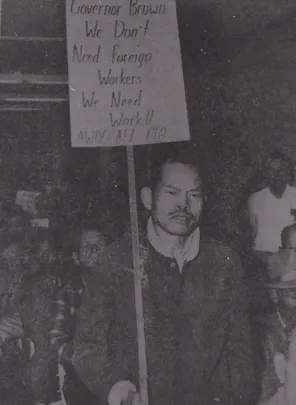 Governor Brown
We Don't
Need Foreign
Workers
We Need
Work!!
AWOC AFL CIO